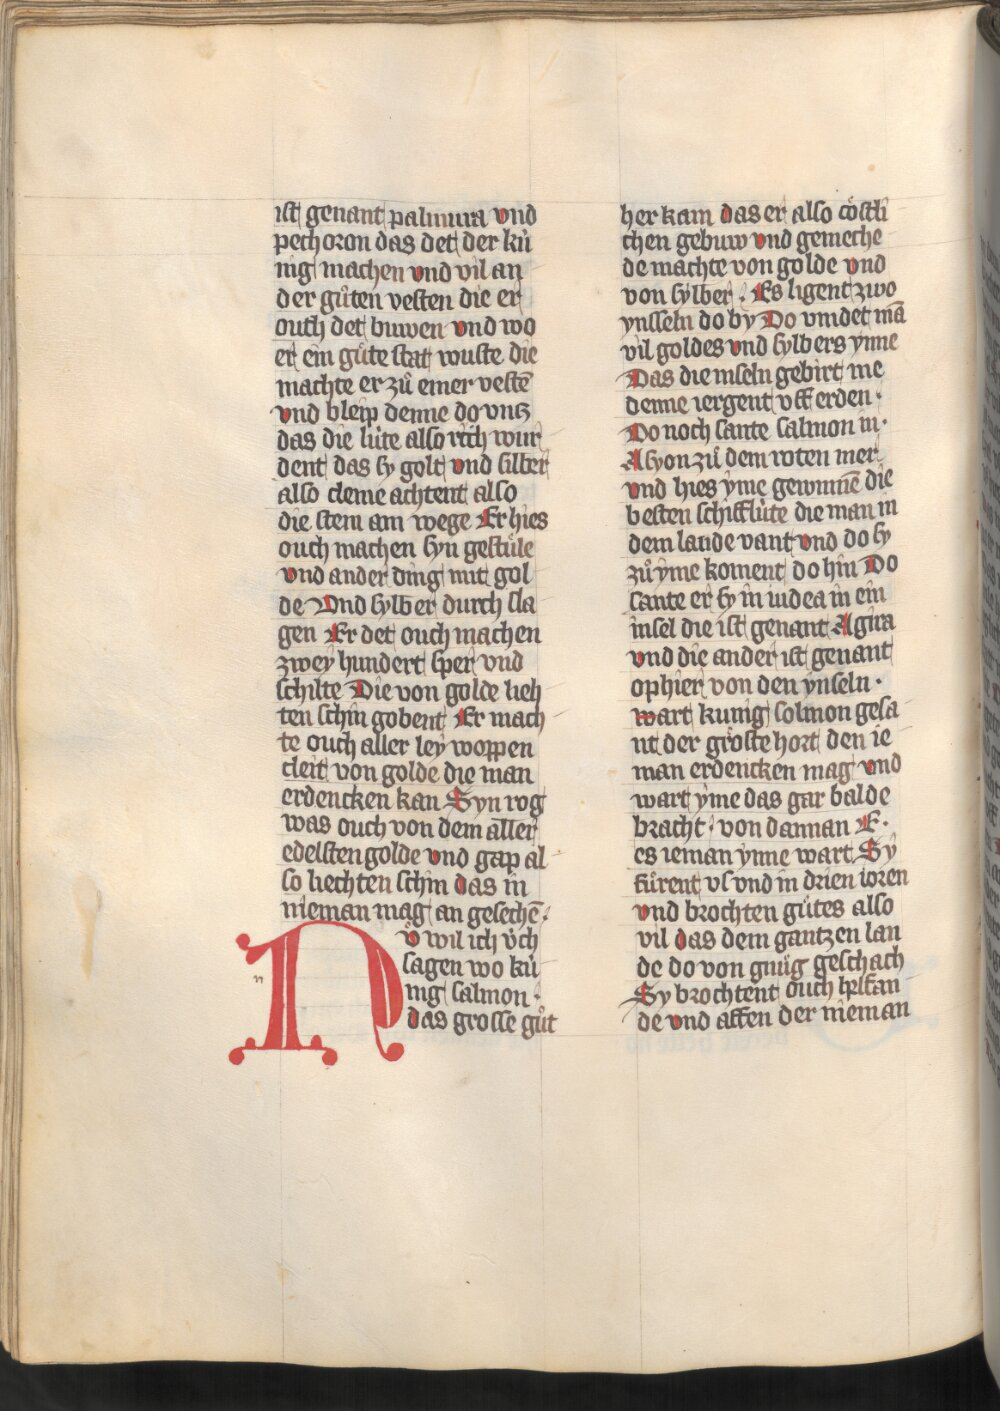 ist genant palmura vnd
pechoron das det der kü
nig machen vnd vil an
der gůten vesten die er
ouch det buwen vnd wo
er ein gůte stat wuste die
machte er zů einer veste͞
vnd bleip denne do vntz
das die lüte also rich wur
dent das sy golt vnd silber
also cleine achtent also
die stein am wege Er hies
ouch machen syn gestüle
vnd ander ding mit gol
de Vnd sylber durch sla
gen Er det ouch machen
zwey hundert sper vnd
schilte Die von golde lieh
ten schin gobent Er mach
te ouch aller ley woppen
cleit von golde die man
erdencken kan Syn rog
was ouch von dem aller
edelsten golde vnd gap al
so liechten schin das in
nieman mag an gesehe͞.
Nů wil ich üch
sagen wo kü
nig salmon.
das grosse gůt
her kam das er also cöstli
chen gebuw vnd gemeche
de machte von golde vnd
von sylber. Es ligent zwo
ynsseln do by Do vindet ma͞
vil goldes vnd sylbers ynne
Das die inseln gebirt me
denne iergent vff erden.
Do noch sante salmon in.
Asyon zů dem roten mer
vnd hies yme gewinne͞ die
besten schifflüte die man in
dem lande vant vnd do sy
zů yme koment do hin Do
sante er sy in iudea in ein
insel die ist genant Agira
vnd die ander ist genant
ophier von den ynseln.
wart kunig solmon gesa
nt der gröste hort den ie
man erdencken mag vnd
wart yme das gar balde
bracht. von dannan E.
es ieman ynne wart Sy
fůrent vs vnd in drien ioren
vnd brochten gůtes also
vil das dem gantzen lan
de do von gnůg geschach
Sy brochtent ouch helfan
de vnd affen der nieman